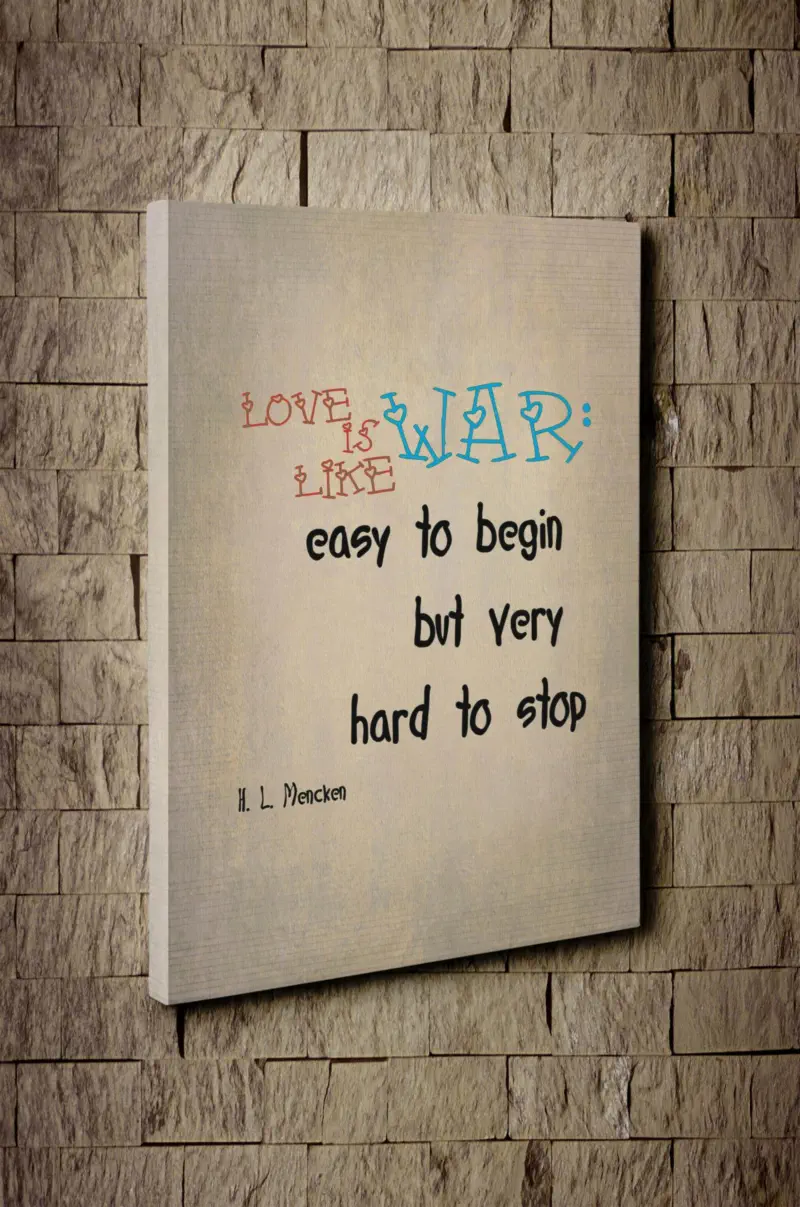 LOVE
IS
LIKE
WAR:
easy to begin
but very
hard to stop
H. L. Mencken